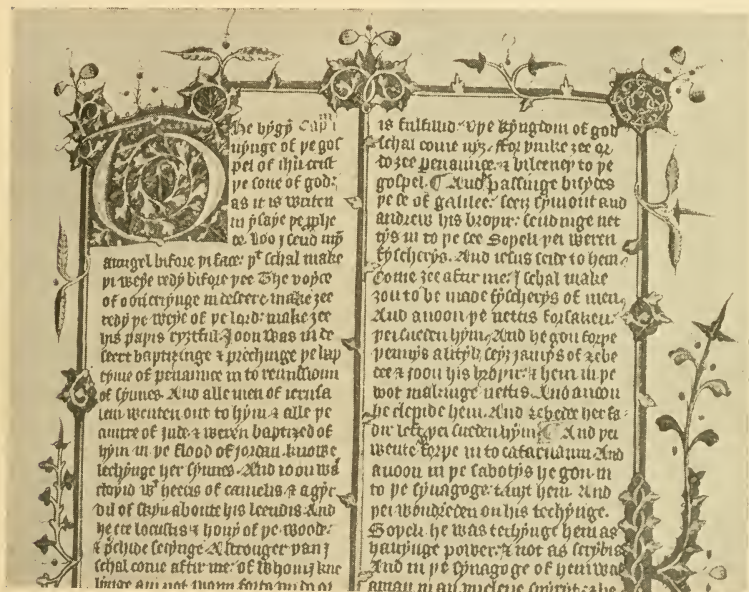 The bygy Capi
nynge of þe gos
pel of ihu crist
þe sone of god:
as it is writen
in ysaye þe pphe
te. Loo j send myn
aungel bifore þi face: þt schal make
þi weye redy bifore þee The voyce
of oon criynge in deseert make zee
redy þe weye of þe lord: make zee
his paþis ryztful. Joon was in de
seert baptizinge & prechynge þe bap
tyme of penaunce in to remissioun
of synnes. And alle men of ierusa
lem wenten out to hym & alle þe
cuntre of jude & weren baptized of
hym in þe flood of jordan. knowle
lechynge her synnes. And ioon was
cloþid wt heeris of camelis & a gyr
dil of skyn aboute his leendis And
he ete locustis & hony of þe wood:
& prchide seyinge A stronger þan j
schal come aftir me: of whom j kne
lynge am not worþi forto vn do or
is fulfillid. & þe kyngdom of god
schal come nyz. ffor þinke zee or
do zee penaunce. & bileeueþ to þe
gospel. And passinge bisydes
þe se of galilee. seez symont and
andrew his broþir. sendinge net
tys in to þe see Soþeli þei weren
fyscherys. And iesus seide to hem
Come zee aftir me: I schal make
zou to be made fyscherys of men,
And anoon þe nettis forsaken:
þei sueden hym, And he gon forþe
þennys a lityl. seyz jamys of zebe
dee & joon his broþir: & hem in þe
boot makinge nettis. And anoon
he clepide hem. And zebede her fa-
dir left, þei sueden hym And þei
wente forþe in to cafarnaum And
anoon in þe sabotys he gon in
to þe synagoge: tauzt hem And
þei wondreden on his techynge.
Soþeli he was techynge hem as
hauynge power: & not as scrybis
And in þe synagoge of hem was
a man in an vnclene spirit: & he